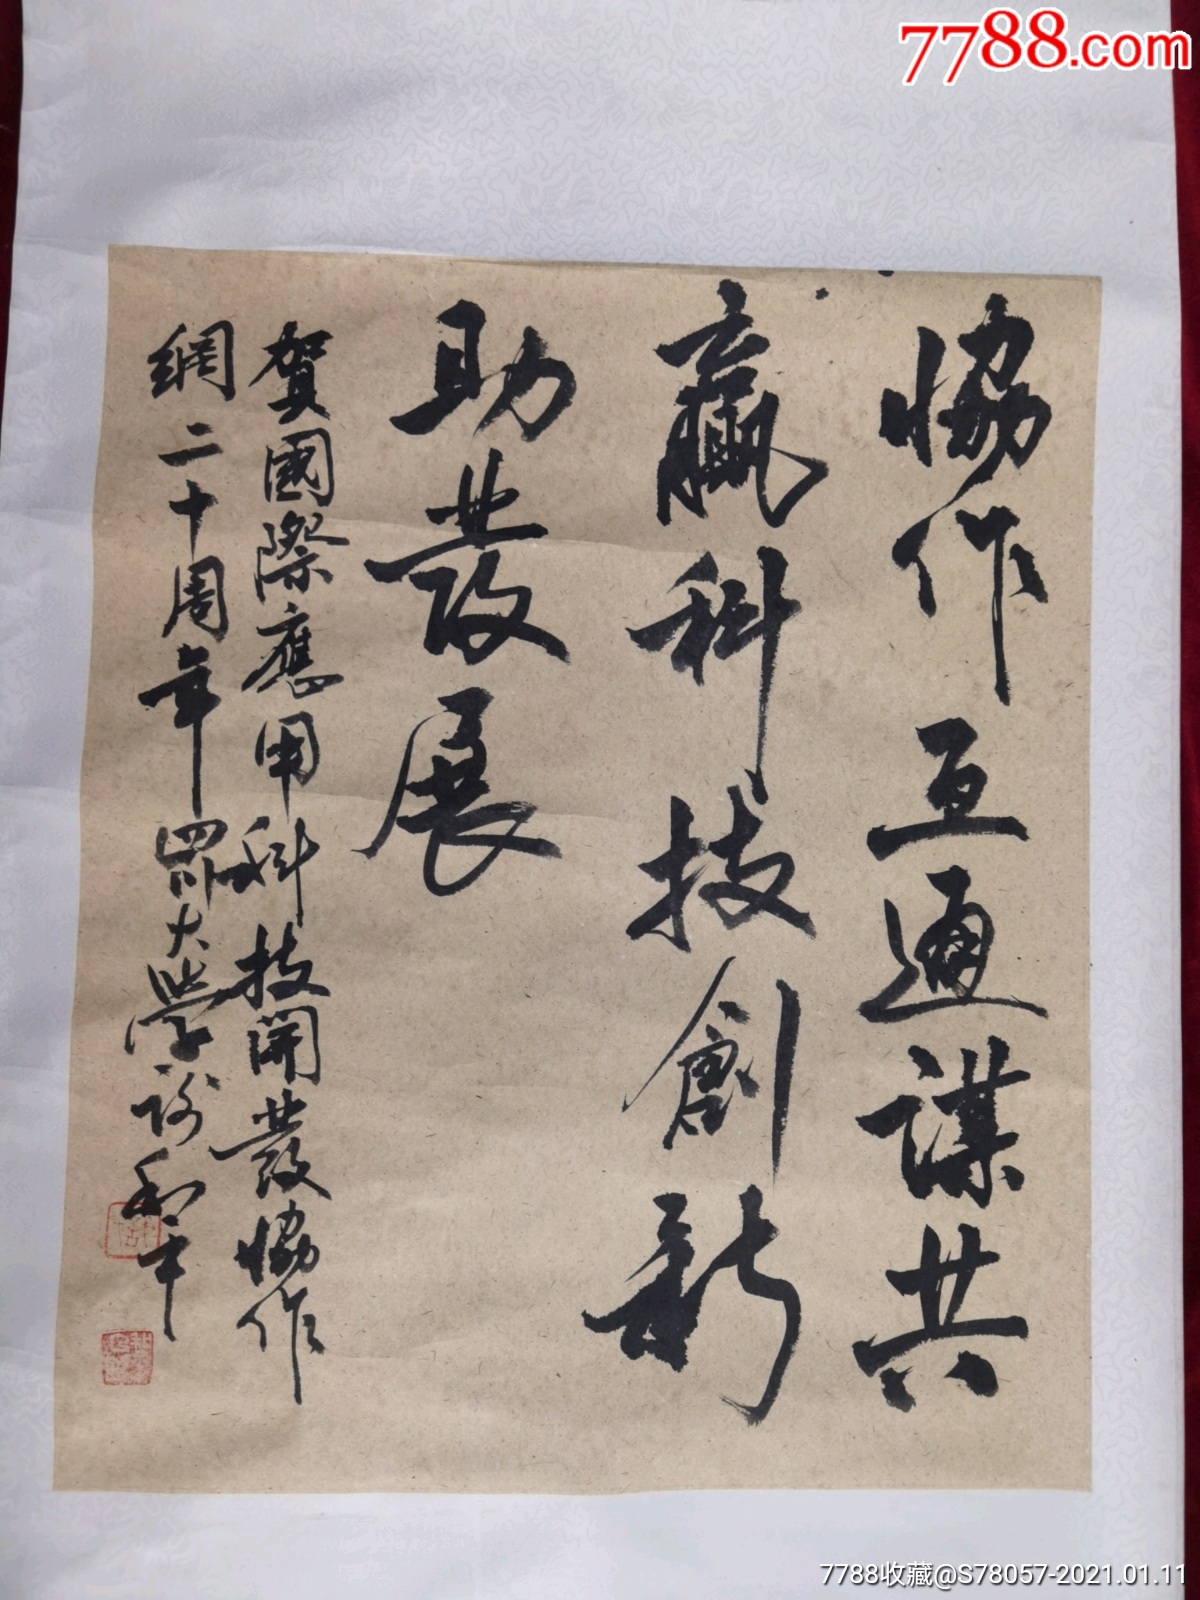 7788.com
協作互通謀共
贏科技創新
助發展
賀國際應用科技開發協作
網二十周年四川大學謝和平
7788收藏@S78057-2021.01.11